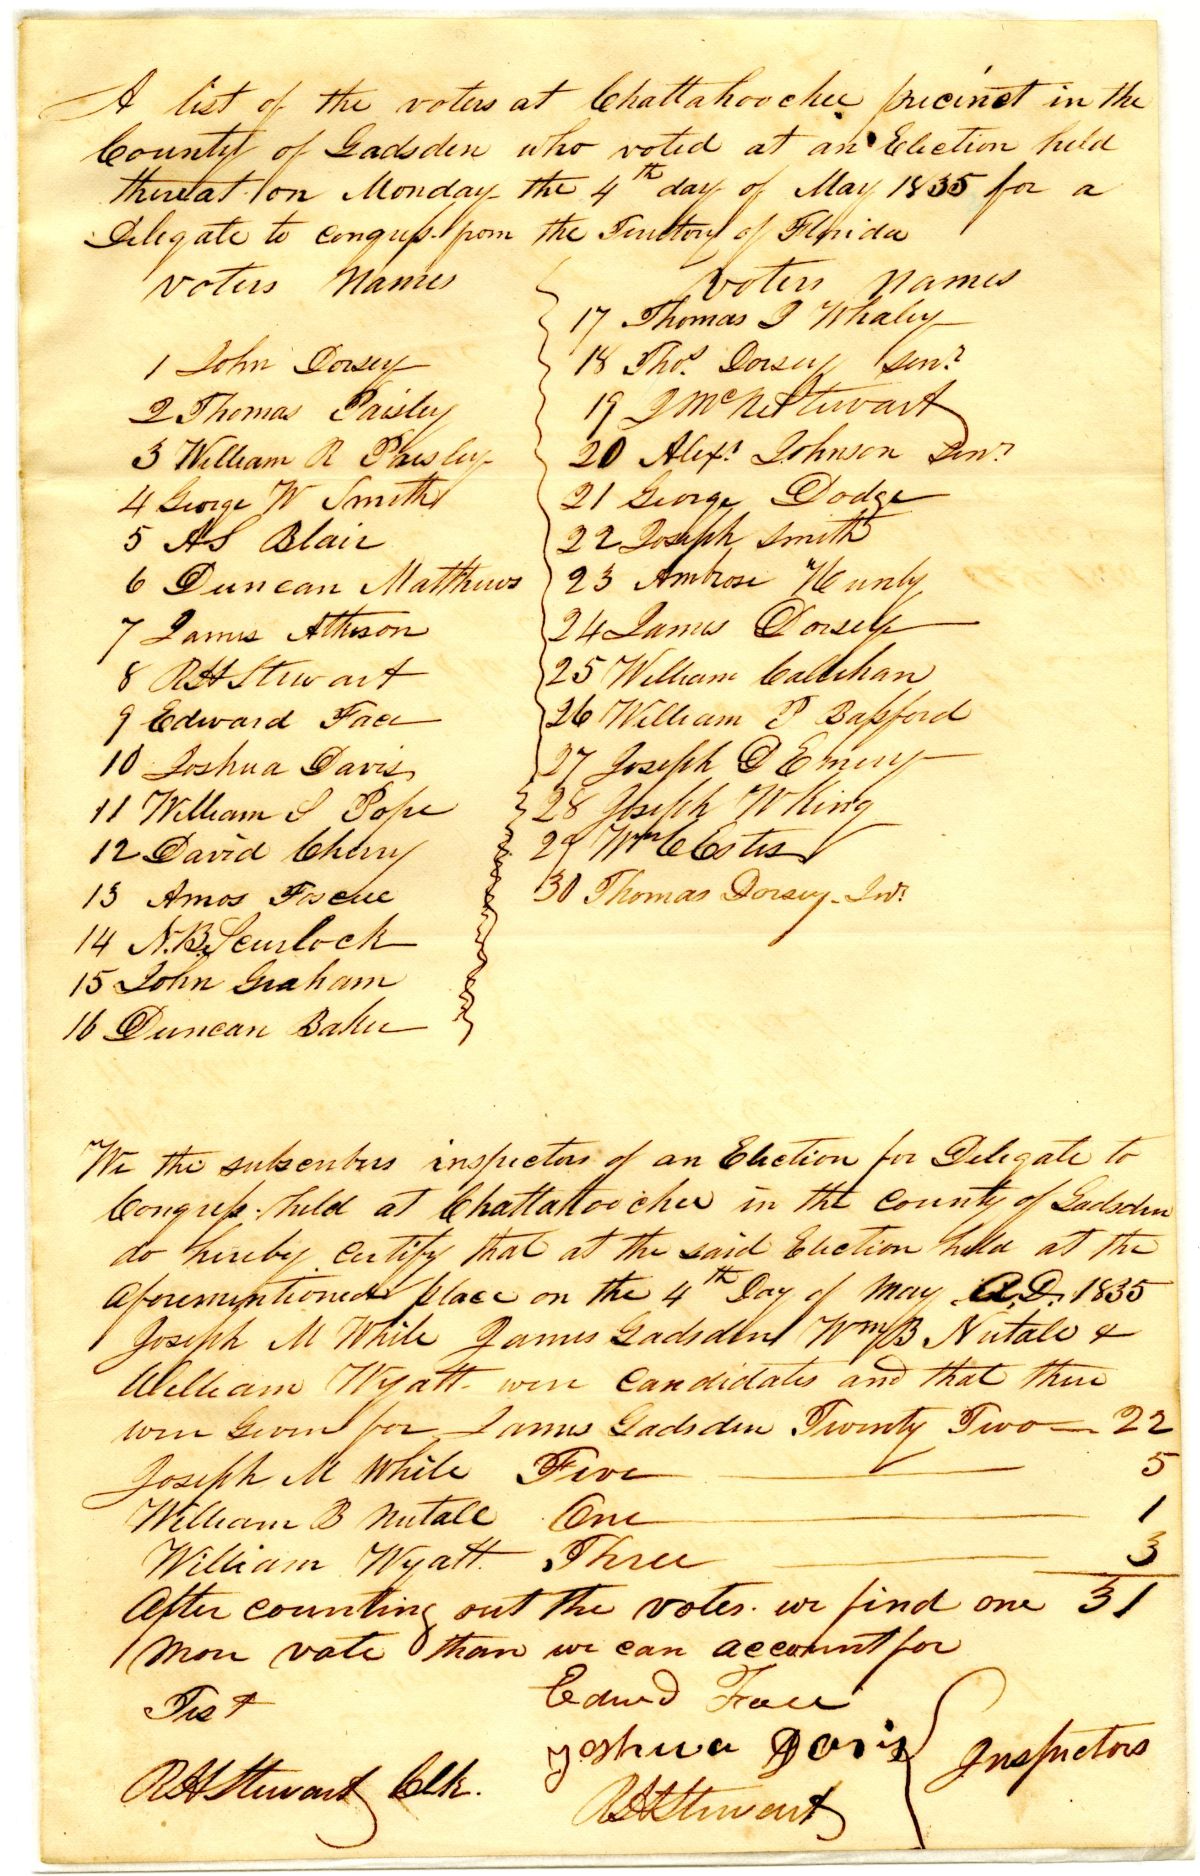 A list of the voters at Chattahoochee precinct in the
County of Gadsden who voted at an Election held
thereat on Monday the 4th day of May 1835 for a
Delegate to congress from the Territory of Florida
voters Names
1 John Dorsey
2 Thomas Paisley
3 William R Paisley
4 George W Smith
5 A S Blair
6 Duncan Matthews
7 James Atkison
8 R H Stewart
9 Edward Face
10 Joshua Davis
11 William S Pope
12 David Cherry
13 Amos Foscue
14 N. B. Scurlock
15 John Graham
16 Duncan Baker
voters names
17 Thomas J Whaley
18 Thos Dorsey Senr
19 J McNe Stewart
20 Alexr Johnson Senr
21 George Dodge
22 Joseph Smith
23 Ambrose
24 James Dorsey
25 William Callihan
26 William P Bassford
27 Joseph D Emery
28 Joseph W King
29 Wm C Estes
30 Thomas Dorsey Junr
We the subscribers inspectors of an Election for Delegate to
Congress held at Chattahoochee in the county of Gadsden
do hereby certify that at the said Election held at the
aforementioned place on the 4th Day of May A.D. 1835
Joseph M White James Gadsden Wm B Nutall &
William Wyatt were candidates and that there
were Given for James Gadsden Twenty Two 22
Joseph M White Five 5
William B Nutall One 1
William Wyatt Three 3
After counting out the votes we find one 31
more vote than we can account for
Test
R H Stewart Clk.
Edwd Face
Joshua Davis
R H Stewart
Inspectors